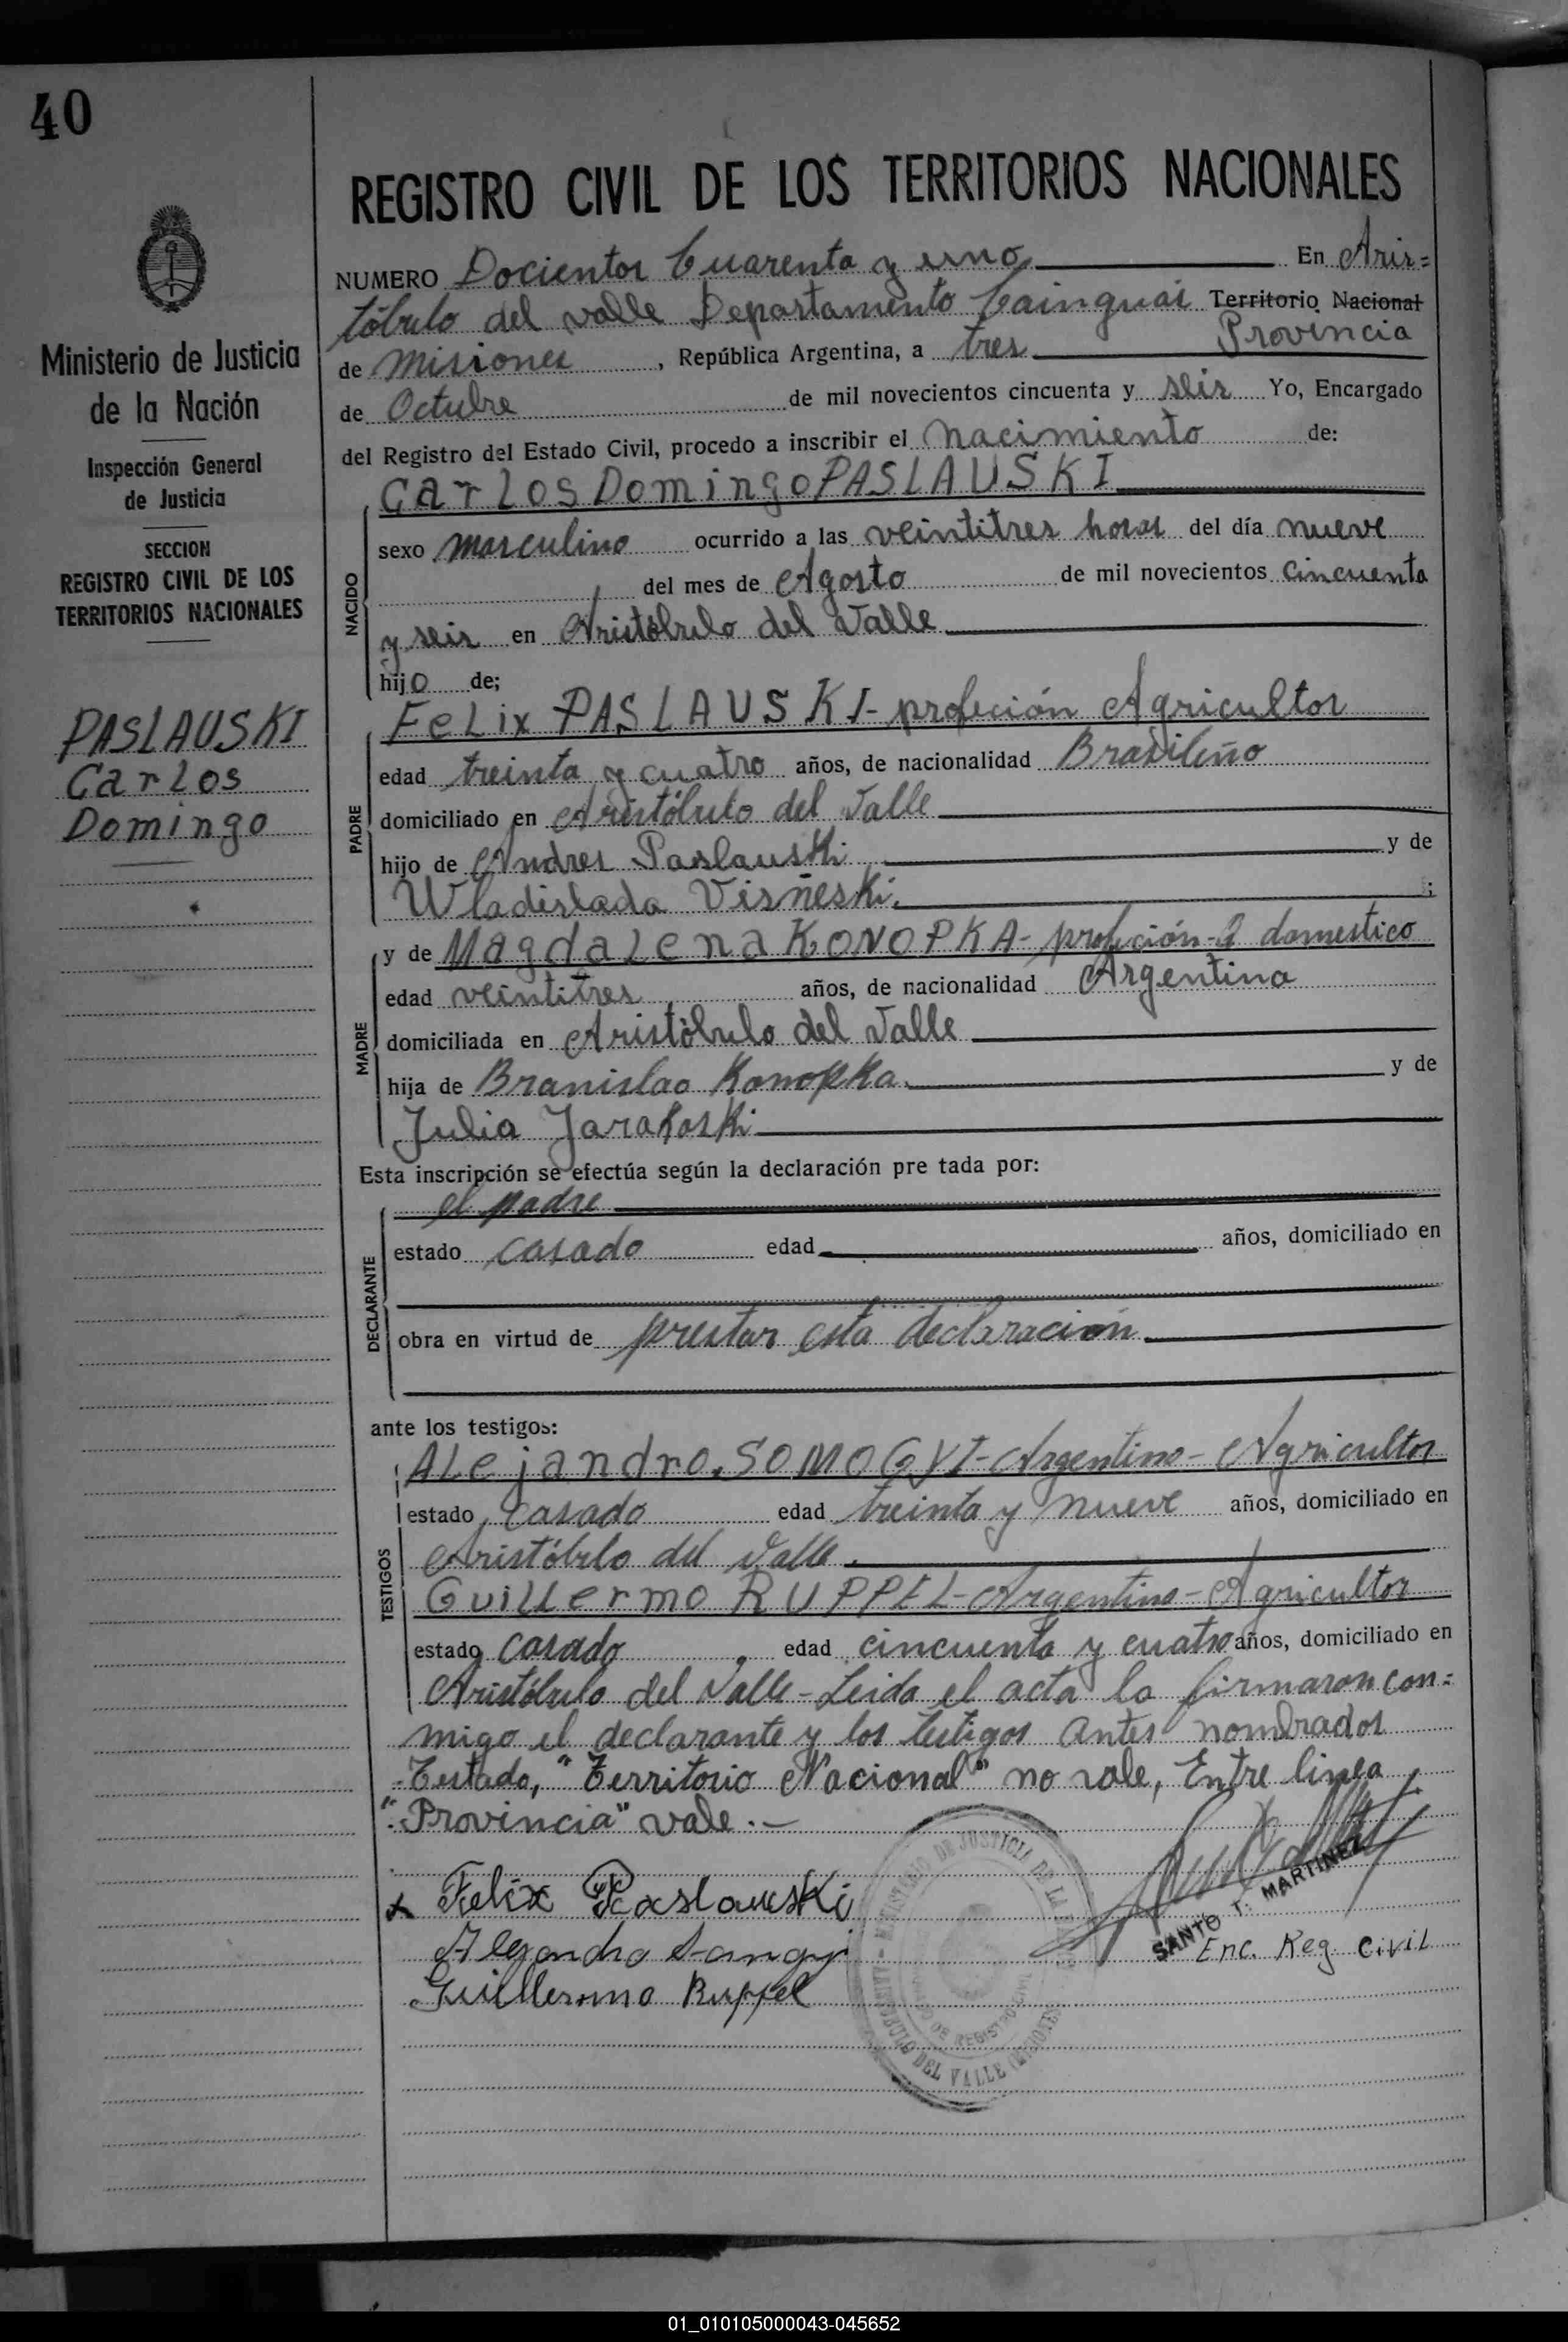 40
Ministerio de Justicia
de la Nación
Inspección General
de Justicia
SECCION
REGISTRO CIVIL DE LOS
TERRITORIOS NACIONALES
PASLAUSKI
Carlos
Domingo
REGISTRO CIVIL DE LOS TERRITORIOS NACIONALES
NUMERO Docientos Cuarenta y uno En Aris=
tóbulo del valle Departamento Cainguás Territorio Nacional
Provincia
de Misiones, República Argentina, a tres
de Octubre de mil novecientos cincuenta y seis Yo, Encargado
del Registro del Estado Civil, procedo a inscribir el nacimiento de:
Carlos Domingo PASLAUSKI
NACIDO
sexo masculino ocurrido a las veintitres horas del día nueve
del mes de Agosto de mil novecientos cincuenta
y seis en Aristóbulo del Valle
hijo de;
Felix PASLAUSKI- profeción Agricultor
PADRE
edad treinta y cuatro años, de nacionalidad Brasileño
domiciliado en Aristóbulo del Valle
hijo de Andres Paslauski y de
Wladislada Visñeski. ;
y de Magdalena KONOPKA- profeción-Q domestico
MADRE
edad veintitres años, de nacionalidad Argentina
domiciliada en Aristóbulo del Valle
hija de Branislao Konopka. y de
Julia
Esta inscripción se efectúa según la declaración pre tada por:
el padre
DECLARANTE
estado casado edad años, domiciliado en
obra en virtud de prestar esta declaración.
ante los testigos:
Alejandro. SOMOGYI- Argentino- Agricultor
TESTIGOS
estado casado edad treinta y nueve años, domiciliado en
Aristóbulo del Valle.
Guillermo RUPPEL- Argentino- Agricultor
estado casado, edad cincuenta y cuatro años, domiciliado en
Aristóbulo del Valle- Leida el acta la firmaron con=
migo el declarante y los testigos antes nombrados
-Testado, "Territorio Nacional" no vale, Entre linea
"Provincia" vale.-
x Felix Paslauski
Guillermo Ruppel
MINISTERIO DE JUSTICIA DE LA
ARISTOBULO DEL VALLE (MISIONES)
SANTO T. MARTINEZ
Enc. Reg. Civil
01_010105000043-045652